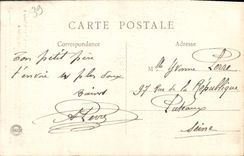 39
CARTE POSTALE
Correspondance
Adresse
Ton petit père
t'envoie ses plus doux
Baisers
A Perre
Mlle Yvonne Perre
97 Rue de la République
Puteaux
Seine